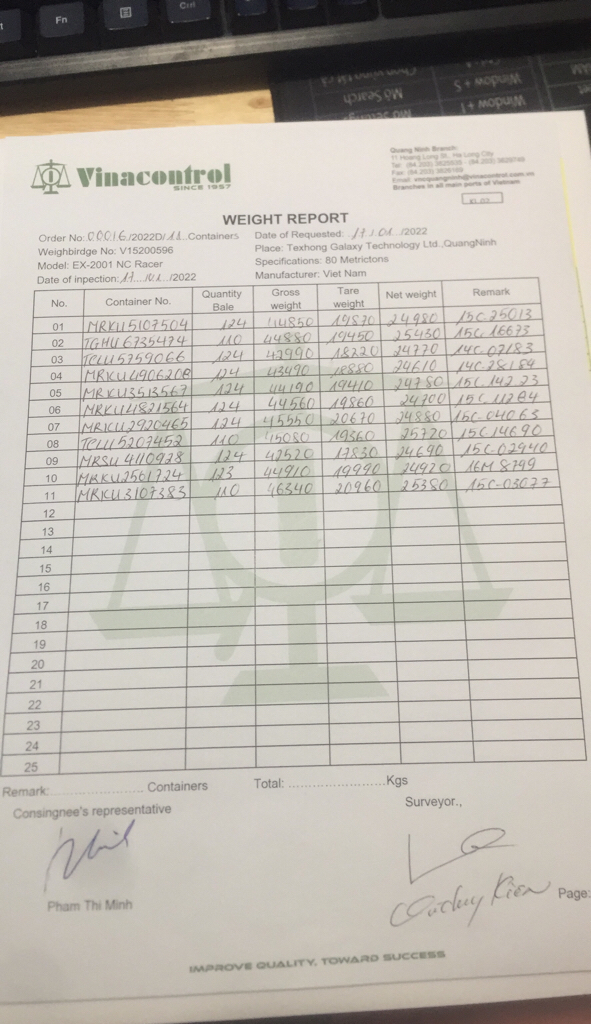 Fn
Ctrl
Mở Search
Window + S
Window + I
Quang Ninh Branch:
11 Hoang Long St., Ha Long City
Branches in all main ports of Vietnam
Vinacontrol
SINCE 1957
WEIGHT REPORT
Order No: 00016/2022D/11 Containers Date of Requested: 17/01/2022
Weighbirdge No: V15200596 Place: Texhong Galaxy Technology Ltd.,QuangNinh
Model: EX-2001 NC Racer Specifications: 80 Metrictons
Date of inpection: 17/01/2022 Manufacturer: Viet Nam
No. Container No. Quantity Bale Gross weight Tare weight Net weight Remark
01 MRKU5107504 124 44850 19870 24980 15C.25013
02 TGHU6735474 110 44880 19450 25430 15C.16673
03 TCLU5759066 124 42990 18220 24770 14C-07183
04 124 43490 18880 24610 14C-28184
05 MRKU3513567 124 44190 19410 24780 15C.142.23
06 MRKU4821564 124 44560 19860 24700
07 MRKU2920465 124 45550 20670 24880 15C-04063
08 TCLU5207452 110 45080 19360 25720 15C-14690
09 MRSU4110928 124 42520 17830 24690 15C-02940
10 MRKU2561724 123 44910 19990 24920 16M 8799
11 MRKU3107383 110 46340 20960 25380 15C-03077
12
13
14
15
16
17
18
19
20
21
22
23
24
25
Remark:........................ Containers Total: ........................Kgs
Consingnee's representative Surveyor.,
Pham Thi Minh
Page:
IMPROVE QUALITY, TOWARD SUCCESS